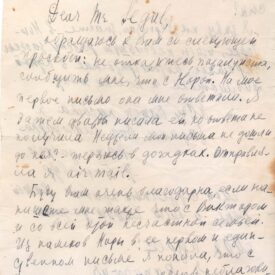 Dear Mr. Segal,
обращаюсь к Вам со следующей
просьбой: не откажитесь, пожалуйста,
сообщить мне, что с Норой. На мое
первое письмо она мне ответила. Я
затем дважды писала ей, но ответа не
получила. Неужели мои письма не дошли
до нее? Теряюсь в догадках. Отправля-
ла я air mail.
Буду Вам очень благодарна, если на-
пишете мне также что с
и со всей этой несчастной семьей.
Из намеков Норы в ее первом и един-
ственном письме я поняла, что с